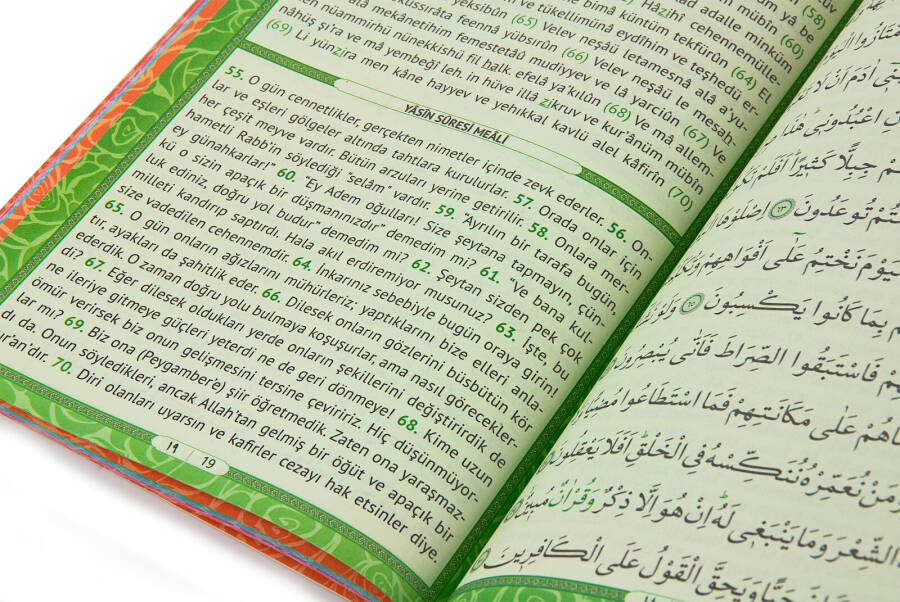 ad adalle minküm
eküssırâta feennâ yübsırûn (65) Velev neşâü
yeksibûn
ve tükellimünâ eydîhim ve teşhedü er
bimâ küntüm tekfürûn (64) El
Hâzihî cehennemülle
mübîn (60)
(58)
alâ mekânetihim femestetâû mudiyyev ve lâ yarciûn (67) Ve
en nüammirhü nünekkishü fil halk. efelâ ya'kılûn (68) Ve mâ allem
nâhüş şi'ra ve mâ yembeğî leh. in hüve illâ zikruv ve kur'ânüm mübîn
(69) Li yünzira men kâne hayyev ve yehıkkal kavlü alel kâfirîn (70)
YÂSİN SÛRESİ MEÂLİ
55. O gün cennetlikler, gerçekten nimetler içinde zevk ederler. 56. On-
lar ve eşleri gölgeler altında tahtlara kurulurlar. 57. Orada onlar için
her çeşit meyve vardır. Bütün arzuları yerine getirilir. 58. Onlara mer-
hametli Rabb'in söylediği "selâm" vardır. 59. "Ayrılın bir tarafa bugün,
ey günahkarlar!" 60. "Ey Adem oğulları! Size şeytana tapmayın, çün-
kü o sizin apaçık bir düşmanınızdır" demedim mi? 61. "Ve bana kul-
luk ediniz, doğru yol budur" demedim mi? 62. Şeytan sizden pek çok
milleti kandırıp saptırdı. Hala akıl erdiremiyor musunuz? 63. İşte, bu
size vadedilen cehennemdir. 64. İnkarınız sebebiyle bugün oraya girin!
65. O gün onların ağızlarını mühürleriz; yaptıklarını bize elleri anla-
tır, ayakları da şahitlik eder. 66. Dilesek onların gözlerini büsbütün kör
ederdik. O zaman doğru yolu bulmaya koşuşurlar, ama nasıl görecekler-
di? 67. Eğer dilesek oldukları yerde onların şekillerini değiştirirdik de
ne ileriye gitmeye güçleri yeterdi ne de geri dönmeye! 68. Kime uzun
ömür verirsek biz onun gelişmesini tersine çeviririz. Hiç düşünmüyor-
lar mı? 69. Biz ona (Peygamber'e) şiir öğretmedik. Zaten ona yaraşmaz
dı da. Onun söyledikleri, ancak Allah'tan gelmiş bir öğüt ve apaçık bir
ur'an'dır. 70. Diri olanları uyarsın ve kafirler cezayı hak etsinler diye
١٩ 19
اٰدَمَ اَنْ لَا
اعْبُدُونٖى
جِبِلًّا كَثٖيرًا اَفَلَمْ
تُوعَدُونَ ٦٣ اِصْلَوْهَا
نَخْتِمُ عَلٰٓى اَفْوَاهِهِمْ
بِمَا كَانُوا يَكْسِبُونَ ٦٥ وَلَوْ
فَاسْتَبَقُوا الصِّرَاطَ فَاَنّٰى يُبْصِرُونَ
عَلٰى مَكَانَتِهِمْ فَمَا اسْتَطَاعُوا مُضِيًّا
مَنْ نُعَمِّرْهُ نُنَكِّسْهُ فِى الْخَلْقِ اَفَلَا يَعْقِلُونَ
الشِّعْرَ وَمَا يَنْبَغٖى لَهُ اِنْ هُوَ اِلَّا ذِكْرٌ وَقُرْاٰنٌ مُبٖينٌ
حَيًّا وَيَحِقَّ الْقَوْلُ عَلَى الْكَافِرٖينَ